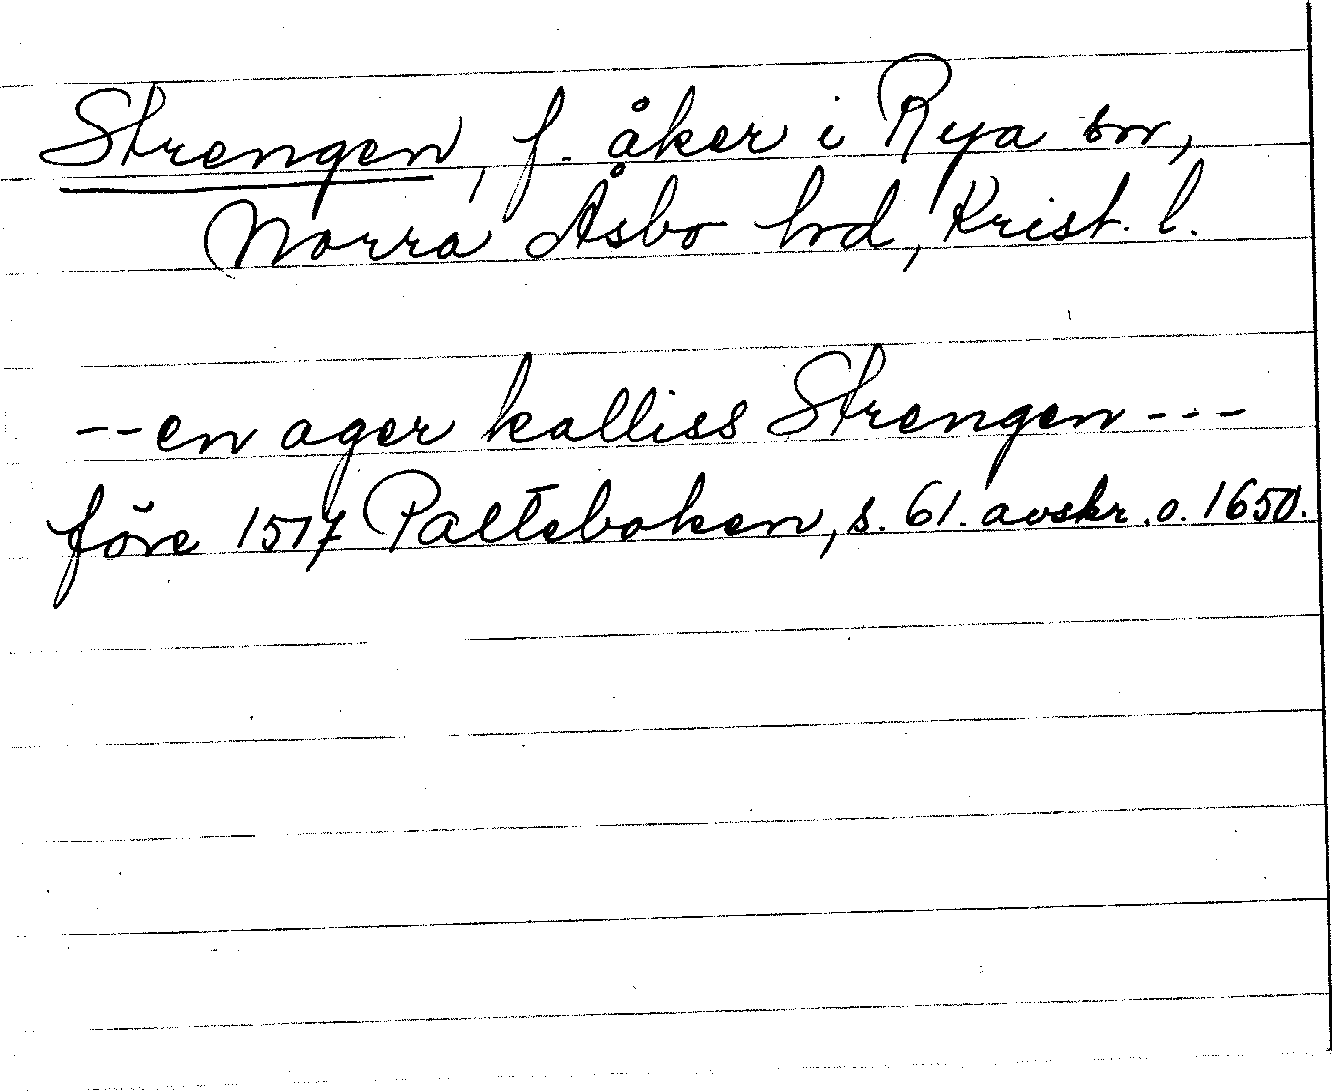 Strengen, f. åker i Rya sn,
Norra Åsbo hd, Krist. l.
-- en ager kalliss Strengen ---
före 1517 Palteboken, s. 61. avskr. o. 1650.